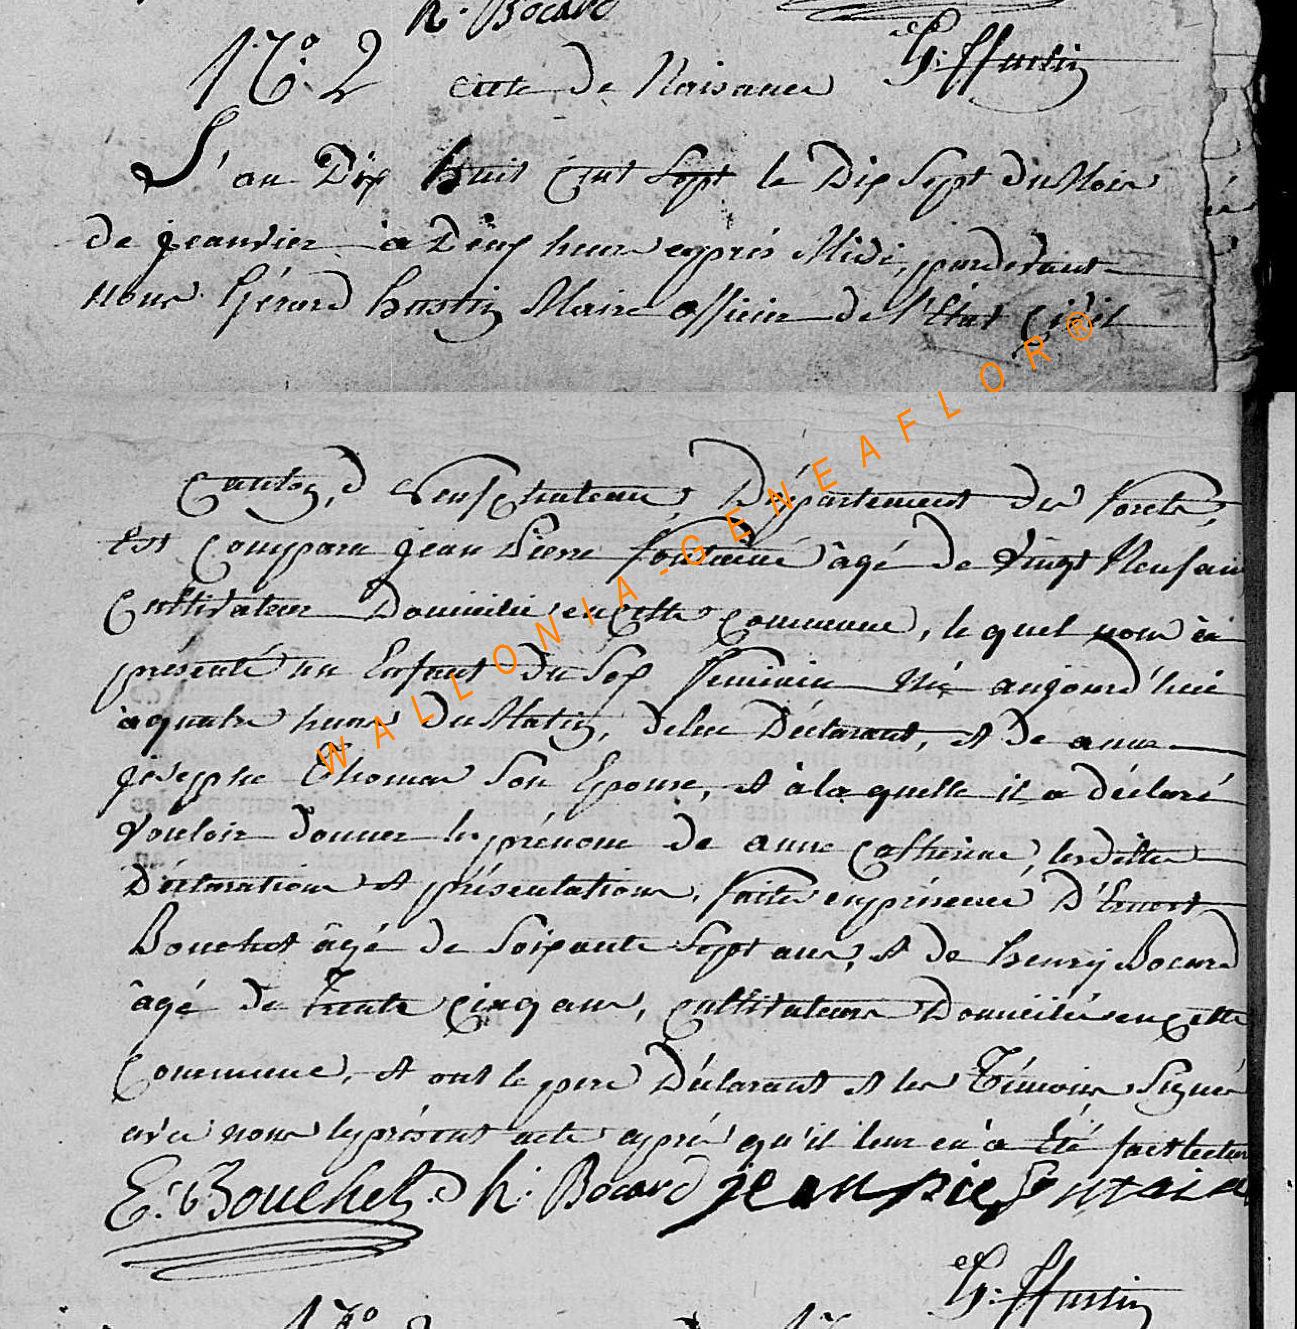 h. Bocard
N.o 2 acte de Naisance G: Hustin
L'an Dix huit Cent Sept le Dix Sept du Mois
de jeanvier à Deux heures après Midi, pardevant
nous Gérard hustin Maire officier de l'État Civil
Canton, d Neufchateau, Département des forets,
Est Comparu jean Pierre fontaine âgé de Vingt Neuf ans
Cultivateur Domicilié en cette Commune, le quel nous à
presenté un Enfant du Sex feminin Né aujourd'hui
à quatre heures du Matin, de lui Déclarant, et de anne
josephe Thomas Son Epouse, et à la quelle il a déclaré
Vouloir donner les prénoms de anne Catherine, les dittes
Déclarations et présentations, faites en présence D'Ernest
Bouchet âgé de Soixante Sept ans, et de henry Bocard
âgé de trente Cinq ans, Cultivateurs Domiciliés en cette
Commune, et ont le pere Déclarant et les Témoins Signés
avec nous le présent acte après qu'il leur en a été fait lecture
E: Bouchet h. Bocard jean pie fontaine
G: Hustin
WALLONIA-GENEAFLOR®